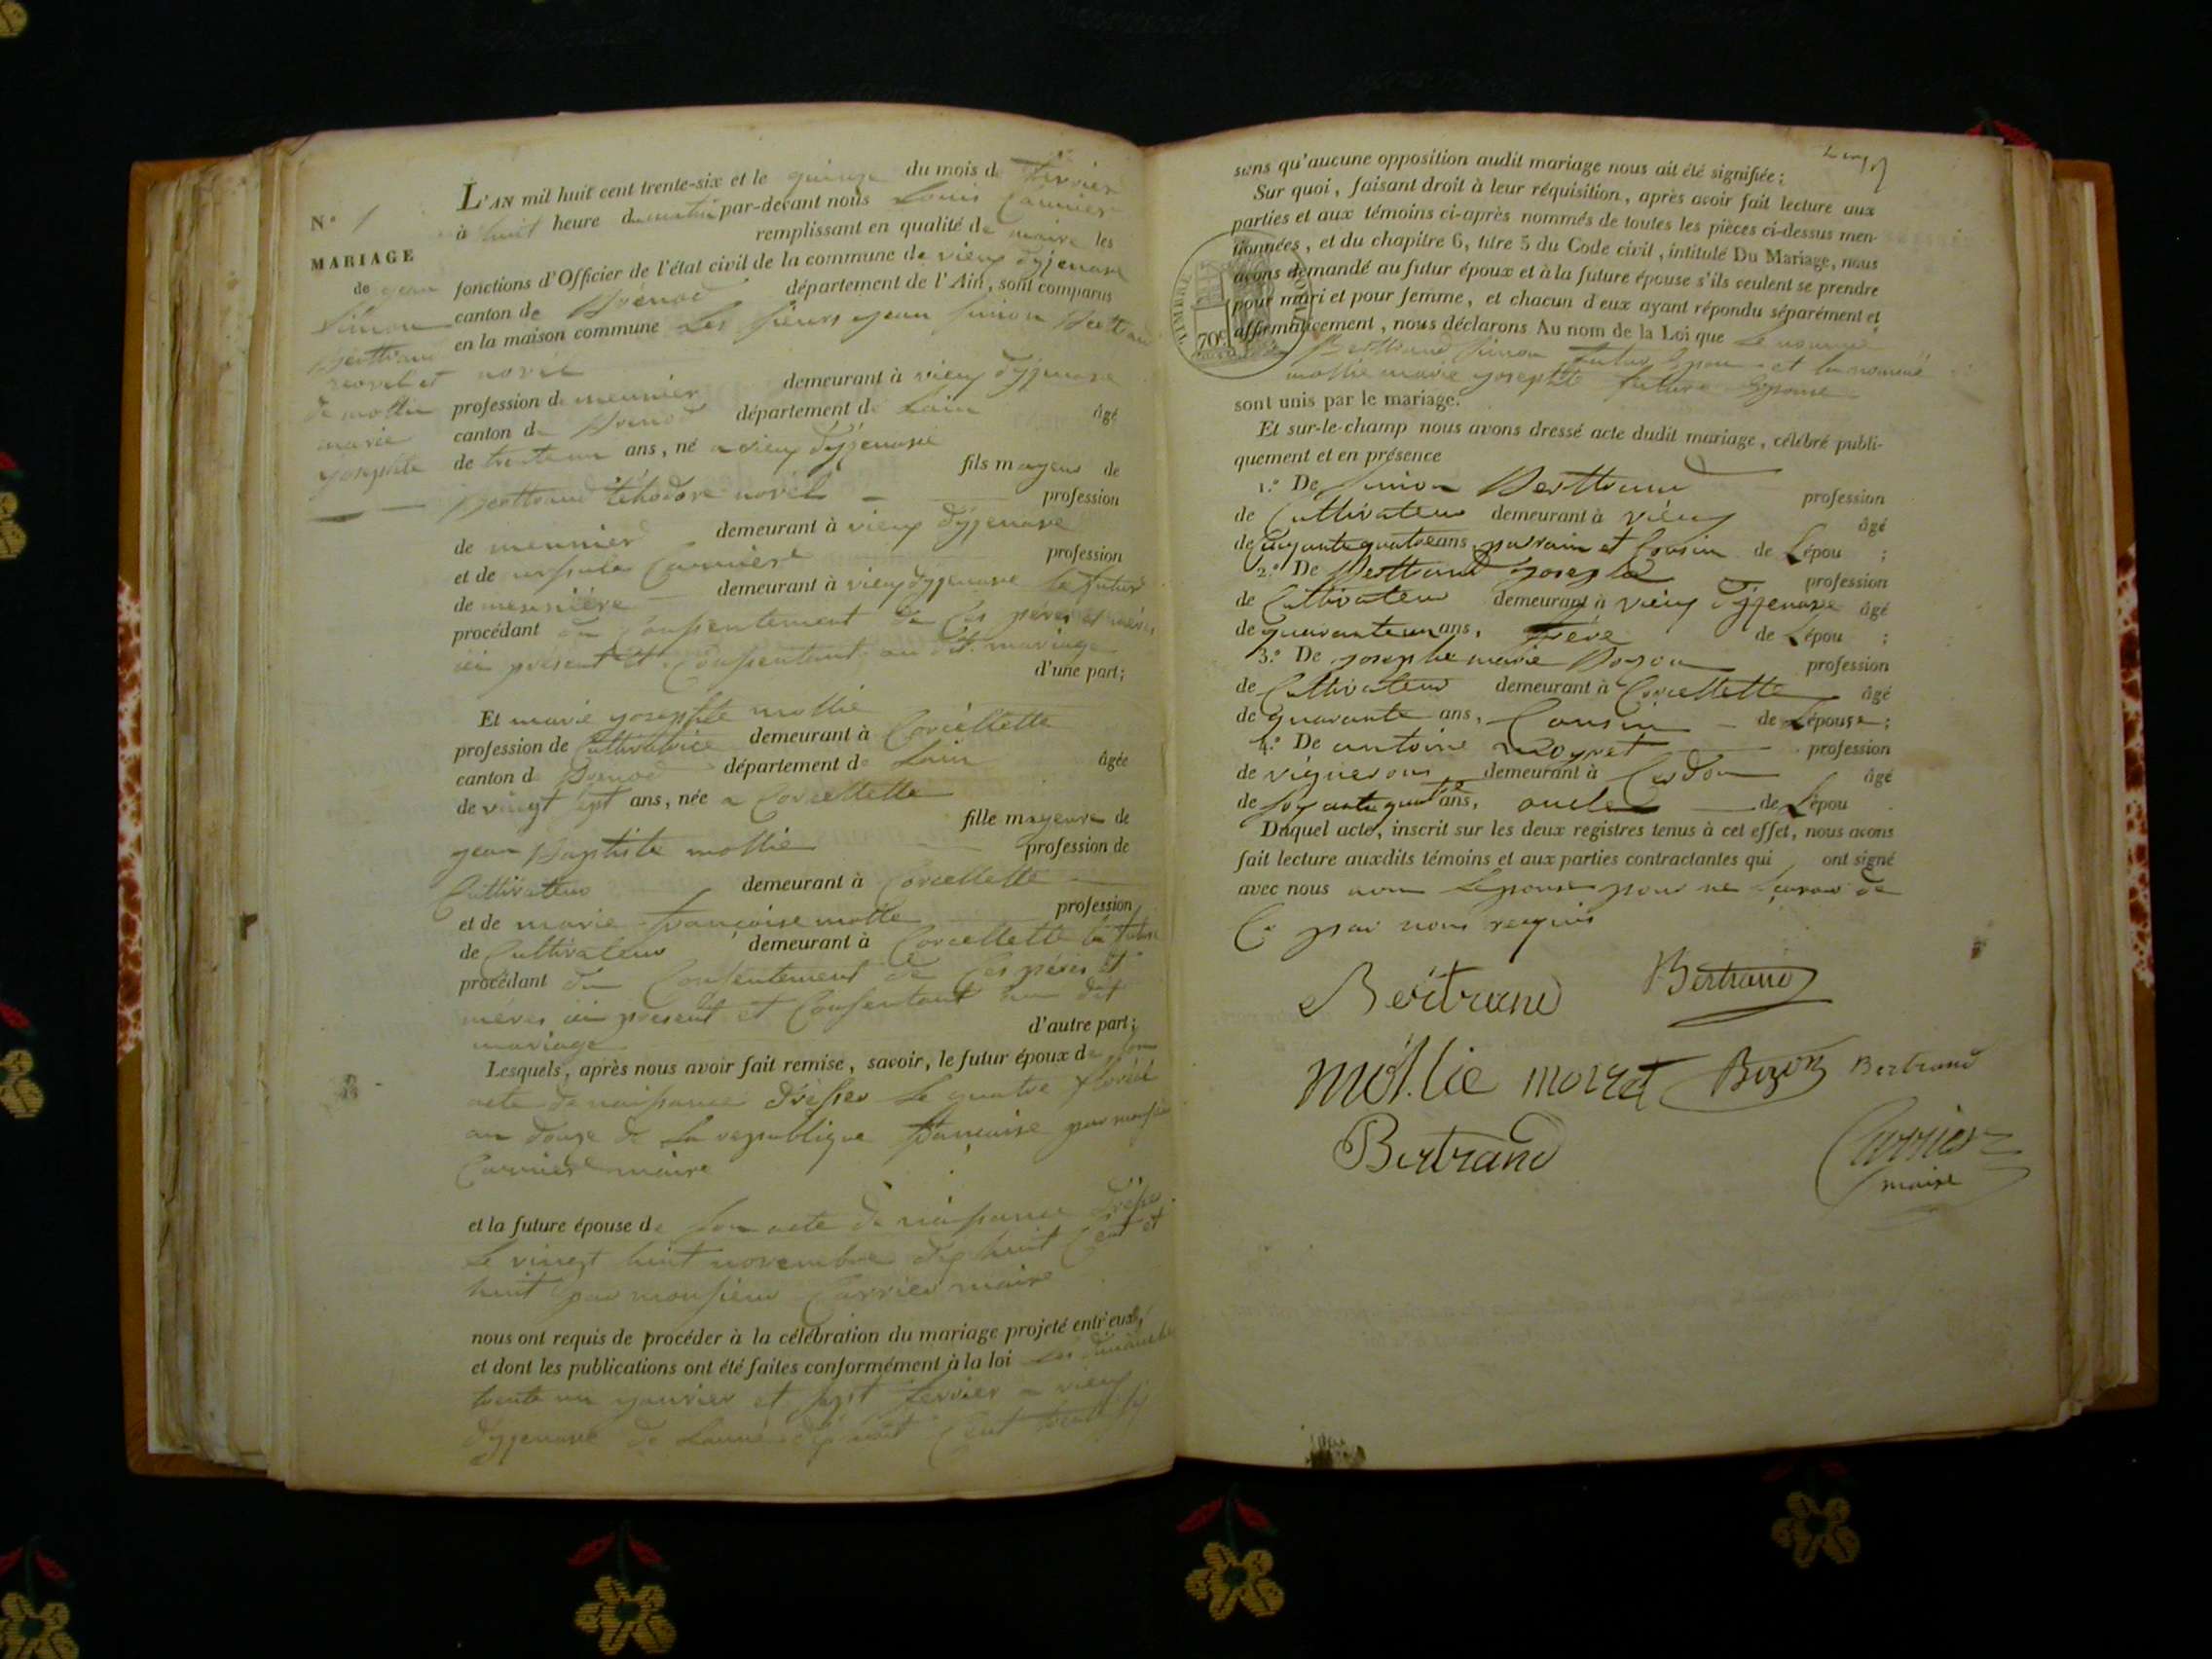 N° 1
MARIAGE
de jean
Simon
Berttrand
novel et
de mollie
marie
josephte
L'AN mil huit cent trente-six et le quinze du mois de février
à huit heure du matin par-devant nous Louis Carrier
remplissant en qualité de maire les
fonctions d'Officier de l'état civil de la commune de vieux dyzenave
canton de Brenod département de l'Ain, sont comparus
en la maison commune Les sieurs jean simon Berttrand
novel
profession de meunier demeurant à vieux dyzenave
canton de Brenod département de Lain âgé
de trente un ans, né a vieux dyzenave
fils mayeur de
Berttrand téhodore novel profession
de meunier demeurant à vieux dyzenave
et de ursule Carrier profession
de meunière demeurant à vieux dyzenave le futur
procédant du Consentement de Ces pères et mères
ici présent et Consentant au dit mariage
d'une part;
Et marie josephte mollie
profession de Cultivatrice demeurant à Corcellette
canton de Brenod département de Lain âgée
de vingt sept ans, née a Corcellette
fille mayeure de
jean Baptiste mollie profession de
Cultivateur demeurant à Corcellette
et de marie françoise molle profession
de Cultivateur demeurant à Corcellette la future
procédant du Consentement de Ces pères et
mères ici présent et Consentant au dit
mariage d'autre part;
Lesquels, après nous avoir fait remise, savoir, le futur époux de son
acte de naissance dresser le quatre floréal
an douze de La republique française par monsieur
Carrier maire
et la future épouse de son acte de naissance dresser
le vingt huit novembre dix huit Cent et
huit par monsieur Carrier maire
nous ont requis de procéder à la célébration du mariage projeté entr'eux,
et dont les publications ont été faites conformément à la loi Les dimanche
trente un janvier et sept fevrier a vieux
dyzenave de Lannée dix huit Cent trente six
sans qu'aucune opposition audit mariage nous ait été signifiée;
Sur quoi, faisant droit à leur réquisition, après avoir fait lecture aux
parties et aux témoins ci-après nommés de toutes les pièces ci-dessus men-
tionnées, et du chapitre 6, titre 5 du Code civil, intitulé Du Mariage, nous
avons demandé au futur époux et à la future épouse s'ils veulent se prendre
pour mari et pour femme, et chacun d'eux ayant répondu séparément et
affirmativement, nous déclarons Au nom de la Loi que Le nommé
Berttrand simon futur Epou et la nommé
mollie marie josephte future Epouse
sont unis par le mariage.
Et sur-le-champ nous avons dressé acte dudit mariage, célébré publi-
quement et en présence
1.° De simon Berttrand profession
de Cultivateur demeurant à vieux âgé
de soixante quatre ans, parrain et Cousin de Lépou ;
2.° De Berttrand joseph profession
de Cultivateur demeurant à vieux dyzenave âgé
de quarante un ans, frère de Lépou ;
3.° De josephe marie Bozon profession
de Cultivateur demeurant à Corcellette âgé
de quarante ans, Cousin de Lépouse ;
4.° De antoine moyret profession
de vigneron demeurant à Cerdon âgé
de soixante quatre ans, oncle de Lépou
Duquel acte, inscrit sur les deux registres tenus à cet effet, nous avons
fait lecture auxdits témoins et aux parties contractantes qui ont signé
avec nous non Lepouse pour ne savoir de
Ce par nous requis
TIMBRE ROYAL
70c
Bertrand Bertrand
mollie moiret Bozon Bertrand
Bertrand
Carrier
maire